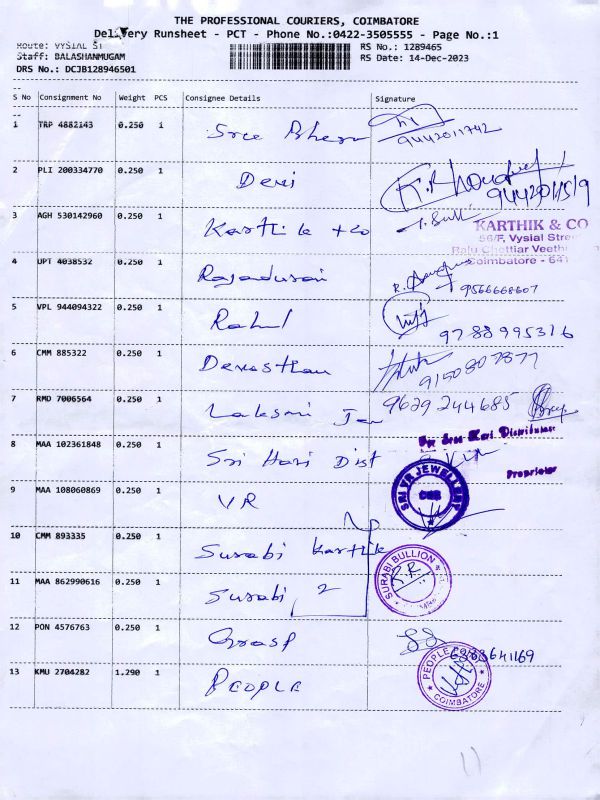 THE PROFESSIONAL COURIERS, COIMBATORE
Delivery Runsheet - PCT - Phone No.:0422-3505555 - Page No.:1
Route: VYSIAL ST
RS No.: 1289465
Staff: BALASHANMUGAM
RS Date: 14-Dec-2023
DRS No.: DCJB128946501
S No Consignment No Weight PCS Consignee Details Signature
1 TRP 4882143 0.250 1 Sree 9442011742
2 PLI 200334770 0.250 1 Devi
3 AGH 530142960 0.250 1 Karthik +co
KARTHIK & CO
56/F, Vysial Stree
Raju Chettiar Veethi
Coimbatore - 641
4 UPT 4038532 0.250 1 Rajadurai 9566668607
5 VPL 944094322 0.250 1 Rahul 9788995316
6 CMM 885322 0.250 1 Devasthan 9150807877
7 RMD 7006564 0.250 1 9629244685
8 MAA 102361848 0.250 1 Sri Hari Dist
For Sree Hari Distributors
Proprietor
9 MAA 108060869 0.250 1 VR
SRI VR JEWELLERY
CBE
10 CMM 893335 0.250 1 Surabi Karthik
SURABI BULLION
11 MAA 862990616 0.250 1 Surabi 2
12 PON 4576763 0.250 1 Grasp 6383641169
13 KMU 2704282 1.290 1 PEOPLE
PEOPLE
COIMBATORE
11